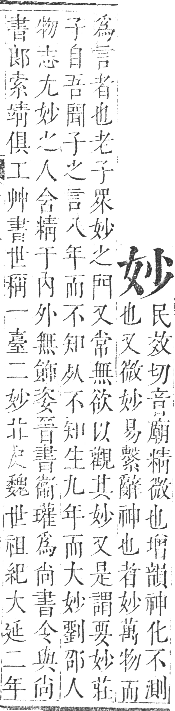 妙
民效切音廟精微也增韻神化不測
也又微妙易繫辭神也者妙萬物而
爲言者也老子眾妙之門又常無欲以觀其妙又是謂要妙莊
子自吾聞子之言八年而不知死不知生九年而大妙劉邵人
物志尤妙之人含精于內外無飾姿晉書衞瓘爲尚書令與尚
書郎索靖俱工艸書世稱一臺二妙北史魏世祖紀大延二年